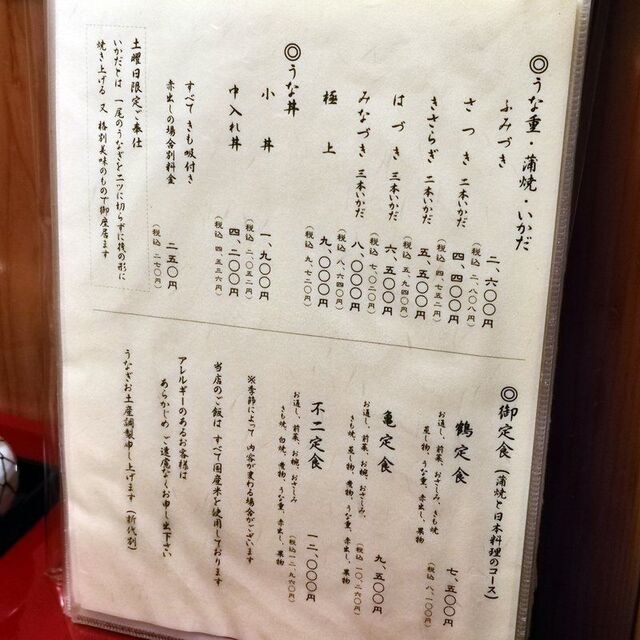 ◎うな重・蒲焼・いかだ
ふみづき 二、六〇〇円
(税込 二、八〇八円)
さつき 二本いかだ 四、四〇〇円
(税込 四、七五二円)
きさらぎ 二本いかだ 五、五〇〇円
(税込 五、九四〇円)
はづき 三本いかだ 六、五〇〇円
(税込 七、〇二〇円)
みなづき 三本いかだ 八、〇〇〇円
(税込 八、六四〇円)
極上 九、〇〇〇円
(税込 九、七二〇円)
◎うな丼
小丼 一、九〇〇円
(税込 二、〇五二円)
中入れ丼 四、二〇〇円
(税込 四、五三六円)
すべてきも吸付き
赤出しの場合別料金 二五〇円
(税込 二七〇円)
土曜日限定ご奉仕
いかだとは 一尾のうなぎを二ツに切らずに筏の形に
焼き上げる 又 格別美味のもので御座居ます
◎御定食(蒲焼と日本料理のコース)
鶴定食 七、五〇〇円
(税込 八、一〇〇円)
お通し、前菜、お椀、おさしみ、きも焼
蒸し物、うな重、赤出し、果物
亀定食 九、五〇〇円
(税込 一〇、二六〇円)
お通し、前菜、お椀、おさしみ
きも焼、蒸し物、煮物、うな重、赤出し、果物
不二定食 一二、〇〇〇円
(税込 一二、九六〇円)
お通し、前菜、お椀、おさしみ
きも焼、白焼、煮物、うな重、赤出し、果物
※季節によって 内容が変わる場合がございます
当店のご飯は すべて国産米を使用しております
アレルギーのあるお客様は
あらかじめ ご遠慮なくお申し出下さい
うなぎお土産調製申し上げます(折代別)